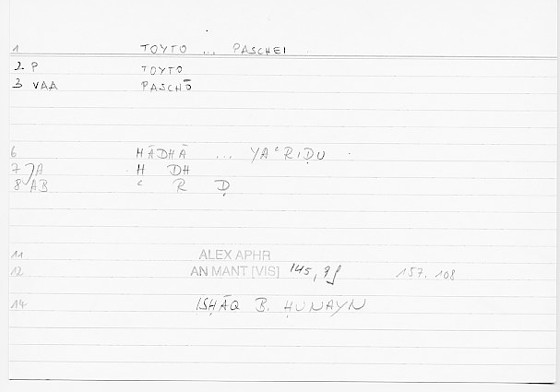 1 TOYTO ... PASCHEI
2. P TOYTO
3 VAA PASCHŌ
6 HĀDHĀ ... YAʿRIḌU
7 JA H DH
8 AB ʿ R Ḍ
11 ALEX APHR
12 AN MANT [VIS] 145, 9f 157. 108
14 ISḤĀQ B. ḤUNAYN